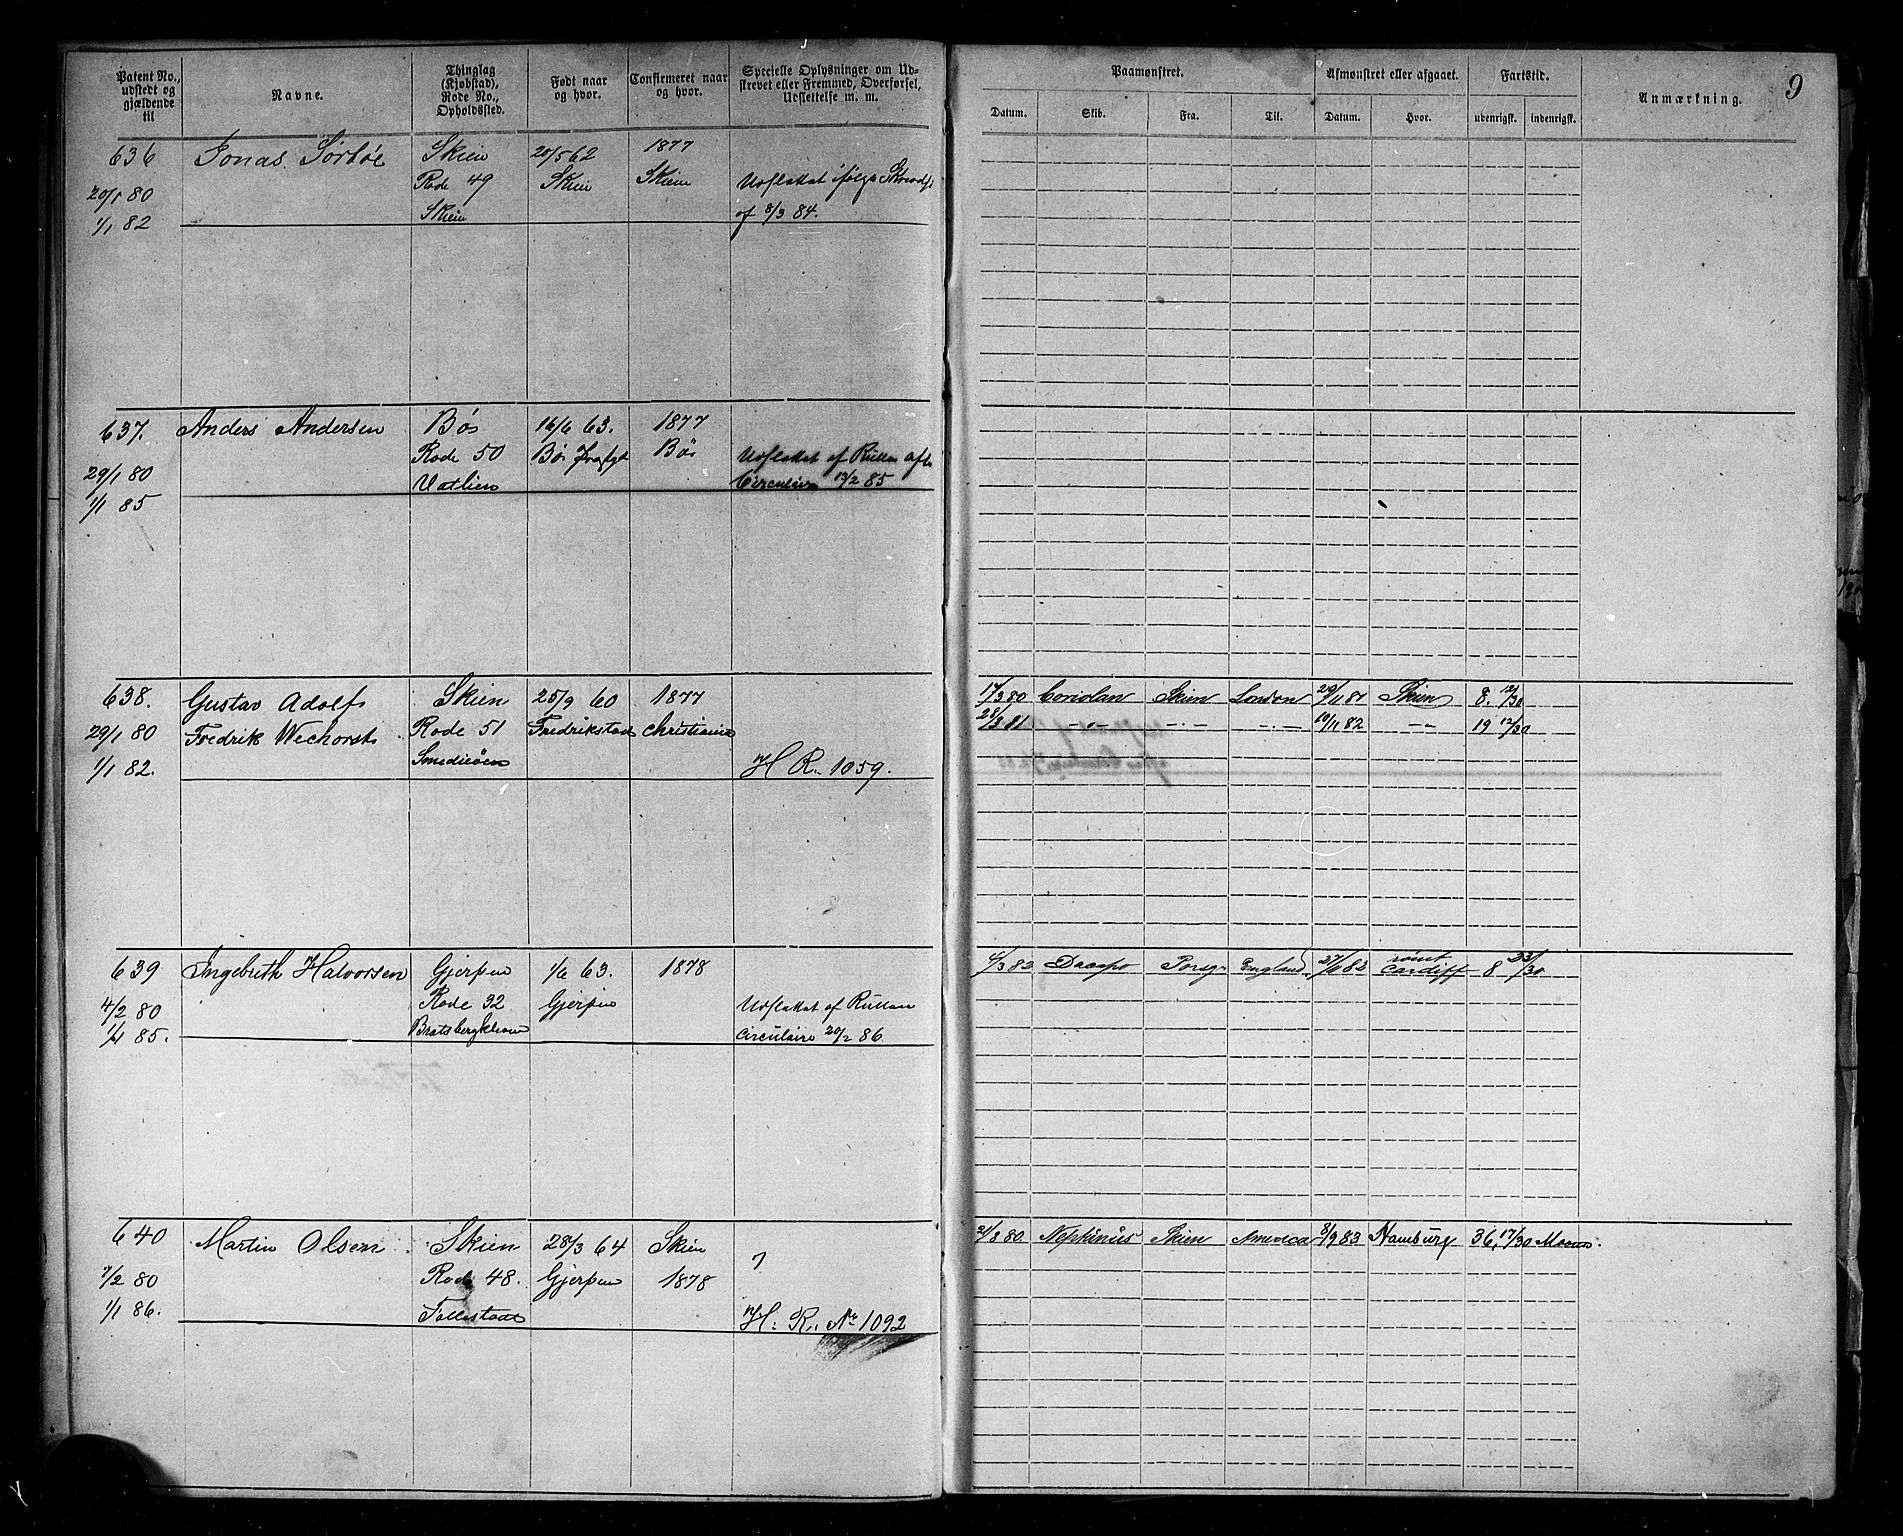 9
Patent No., udstedt og gjældende til
Navne.
Thinglag (Kjøbstad), Rode No., Opholdssted.
Født naar og hvor.
Confirmeret naar og hvor.
Specielle Oplysninger om Udskrevet eller Fremmed, Overførsel, Udslettelse m. m.
Paamønstret.
Afmønstret eller afgaaet.
Fartstid.
Anmærkning.
Datum. Skib. Fra. Til. Datum. Hvor. udenrigsk. indenrigsk.
636 Jonas Sørbøe Skien 20/5 62 1877
20/1 80 Rode 49 Skien Skien Udslettet ifølge
1/1 82 Skien af 8/3 84.
637. Anders Andersen Bø 16/6 63. 1877
29/1 80 Rode 50 Bø Bø Udslettet af Rullen
1/1 85 Vatlien Circulære 12/2 85
638. Gustav Adolf Skien 25/9 60 1877 17/3 80 Coriolan Skien London 29/1 81 Skien 8. 12/30
29/1 80 Fredrik Wechorst Rode 51 Fredrikstad Christiania 28/3 81 -"- -"- -"- 10/11 82 -"- 19 12/30
1/1 82. Smedieøen H R. 1059.
639 Ingebreth Halvorsen Gjerpen 1/6 63. 1878 4/3 82 Dacapo Porsgr England 27/11 82 rømt Cardiff 8 23/30
4/2 80 Rode 32 Gjerpen Udslettet af Rullen
1/1 85. Bratsbergkleven Circulaire 20/2 86
640 Martin Olsen Skien 28/3 64 Skien 21/3 80 Neptunus Skien America 8/9 83 Hamburg 36, 17/30
7/2 80 Rode 48. Gjerpen 1878
1/1 86. Follestad H. R. No 1092